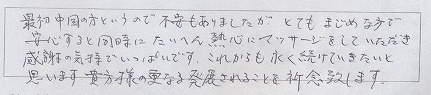 最初中国の方というので不安もありましたが とてもまじめな方で
安心すると同時にたいへん熱心にマッサージをしていただき
感謝の気持でいっぱいです。これからも永く続けていきたいと
思います貴方様の更なる発展されることを祈念致します。